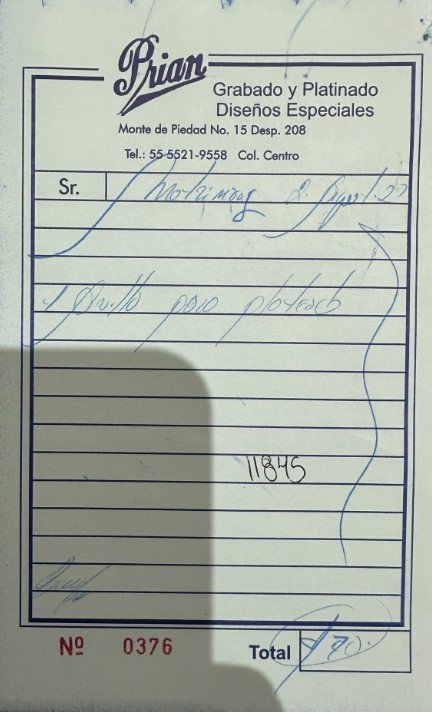 Prian
Grabado y Platinado
Diseños Especiales
Monte de Piedad No. 15 Desp. 208
Tel.: 55 5521-9558 Col. Centro
Sr.
1 Anillo para plateado
11845
Nº 0376 Total